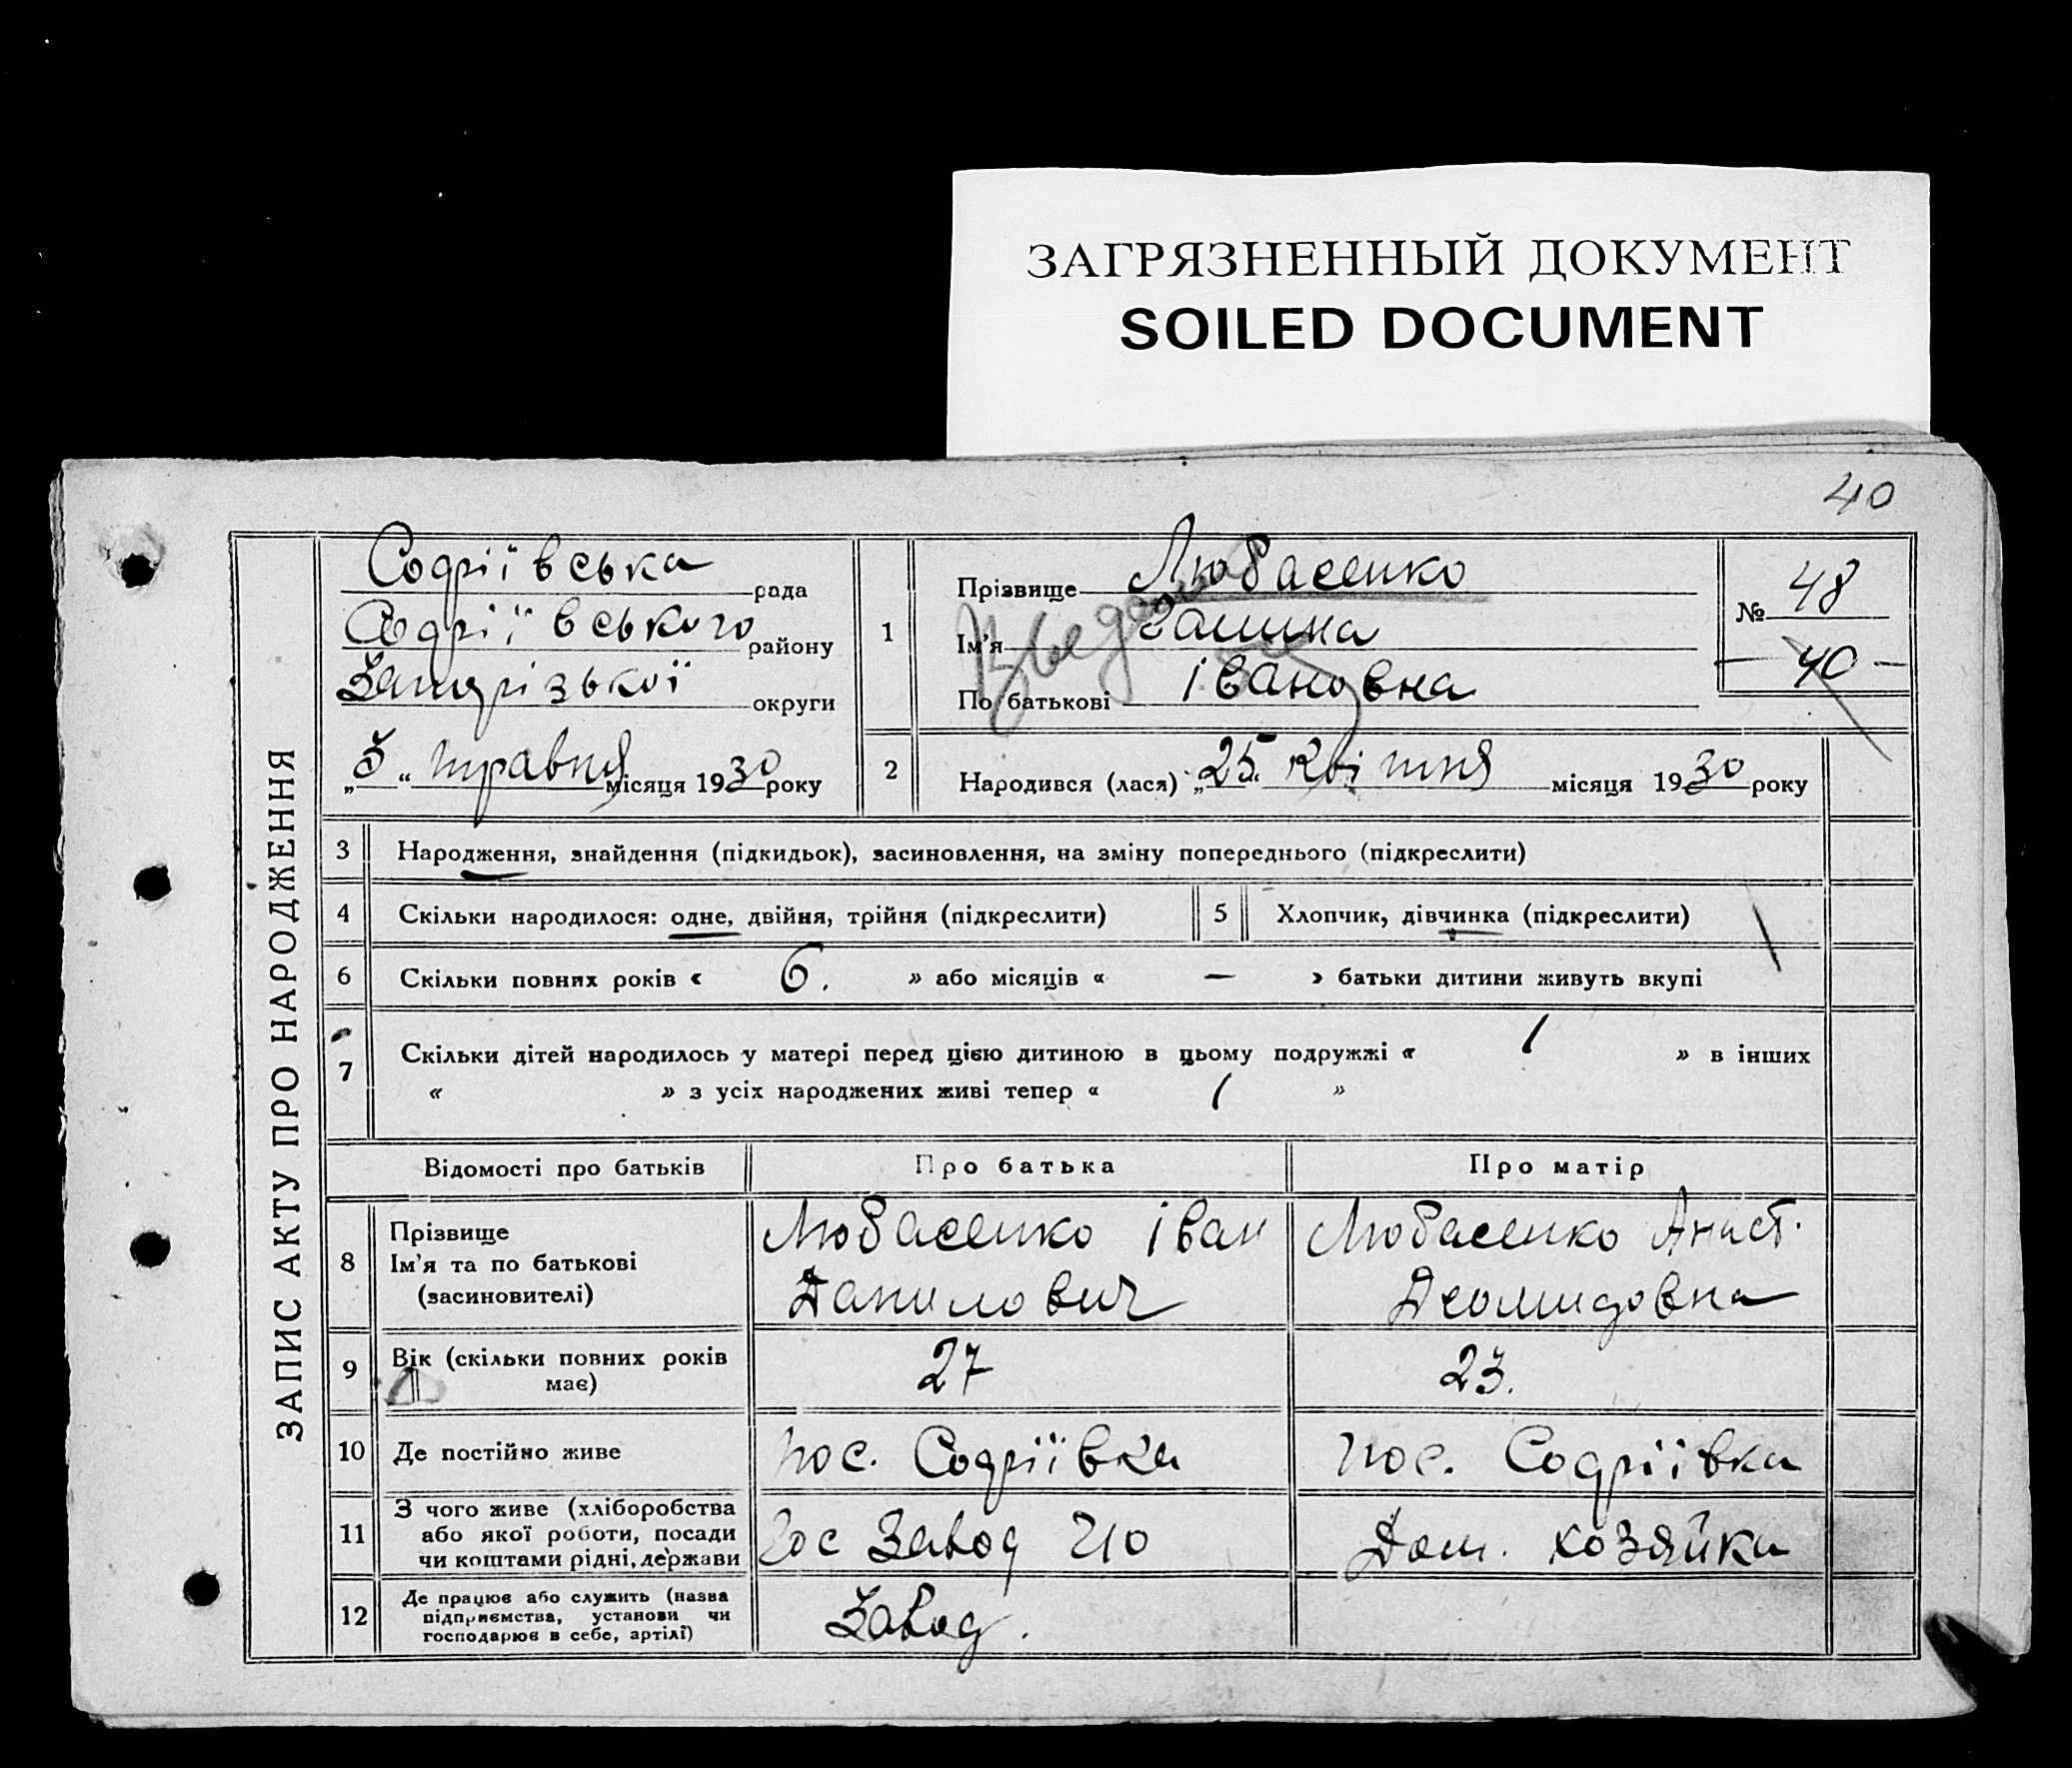 ЗАГРЯЗНЕННЫЙ ДОКУМЕНТ
SOILED DOCUMENT
40
ЗАПИС АКТУ ПРО НАРОДЖЕННЯ
Софіївська рада
Софіївського району
Запорізької округи
„3“ травня місяця 1930 року
1
Прізвище Любасенко
Ім'я Галина
По батькові Івановна
№ 48
— 40 —
2 Народився (лася) „25“ квітня місяця 1930 року
3 Народження, знайдення (підкидьок), засиновлення, на зміну попереднього (підкреслити)
4 Скільки народилося: одне, двійня, трійня (підкреслити) 5 Хлопчик, дівчинка (підкреслити)
6 Скільки повних років « 6. » або місяців « — » батьки дитини живуть вкупі
7 Скільки дітей народилось у матері перед цією дитиною в цьому подружжі « 1 » в інших
« » з усіх народжених живі тепер « 1 »
Відомості про батьків Про батька Про матір
8 Прізвище Ім'я та по батькові (засиновителі)
Любасенко Іван Данилович
Любасенко Анаст. Деомидовна
9 Вік (скільки повних років має) 27 23.
10 Де постійно живе пос. Софіївка пос. Софіївка
11 З чого живе (хліборобства або якої роботи, посади чи коштами рідні, держави
Гос Завод Дом. хозяйка
12 Де працює або служить (назва підприємства, установи чи господарює в себе, артілі)
Завод.